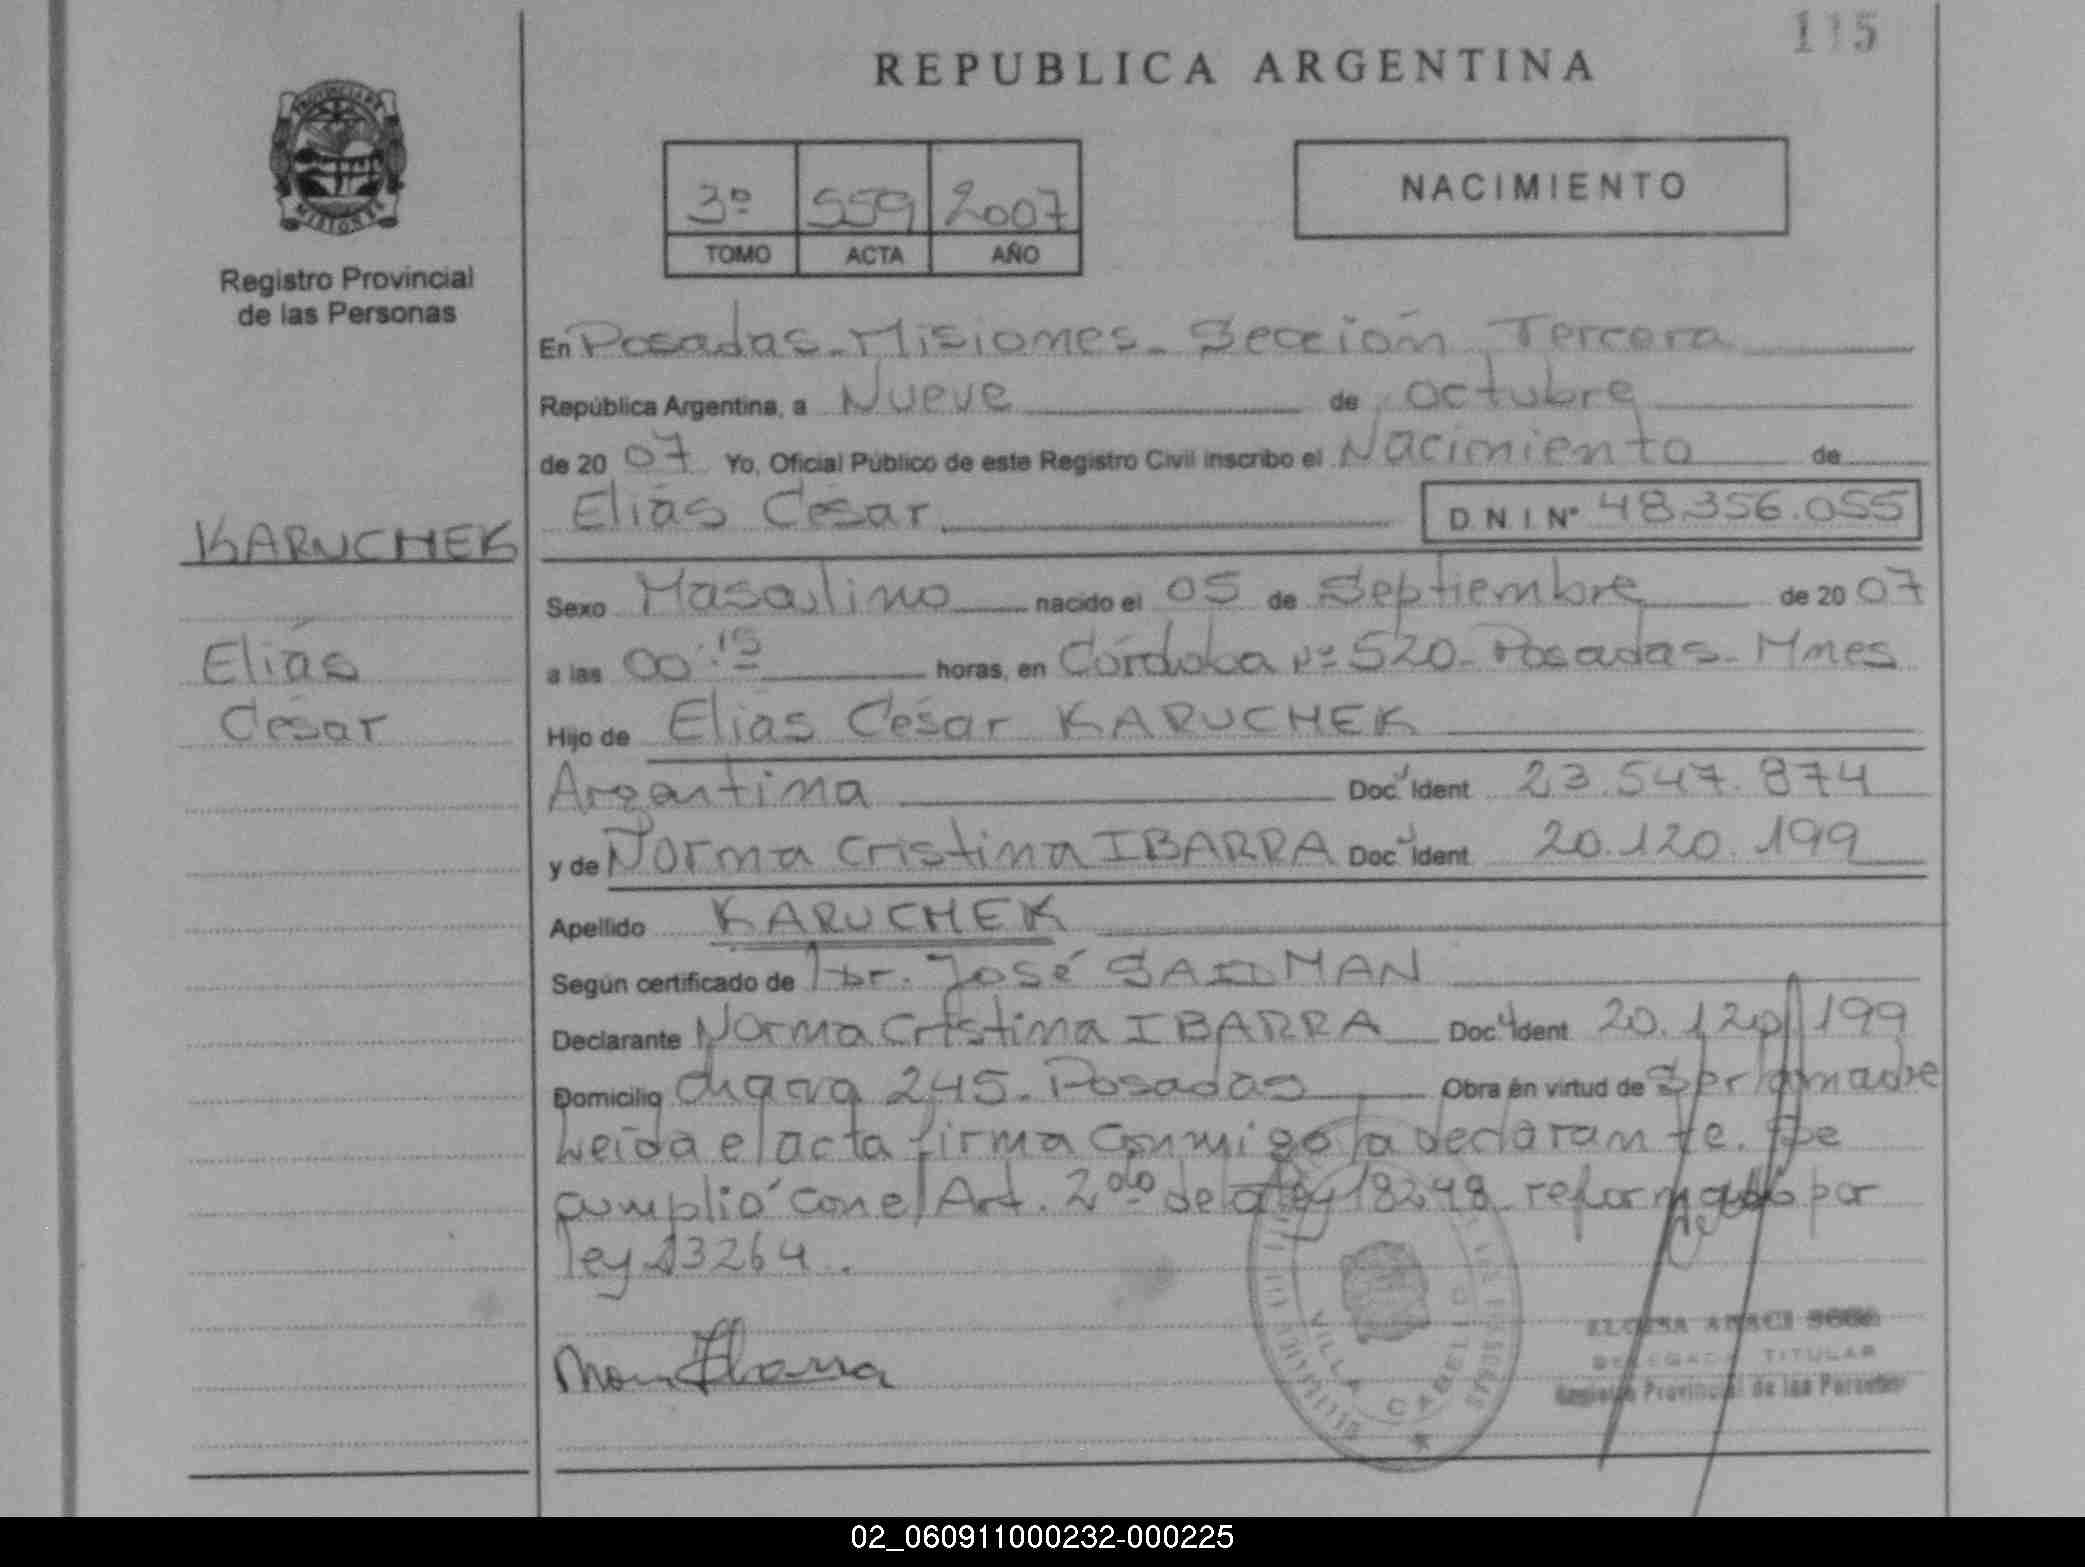 115
REPUBLICA ARGENTINA
3º 559 2007
TOMO ACTA AÑO
NACIMIENTO
MISIONES
Registro Provincial
de las Personas
KARUCHEK
Elías
César
En Posadas - Misiones - Sección Tercera
República Argentina, a Nueve de octubre
de 2007 Yo, Oficial Público de este Registro Civil inscribo el Nacimiento de
Elías César D N I Nº 48.356.055
Sexo Masculino nacido el 05 de Septiembre de 2007
a las 00:15 horas, en Córdoba Nº 520 - Posadas - Mnes
Hijo de Elías César KARUCHEK
Argentina Doc. Ident 23.547.874
y de Norma Cristina IBARRA Doc. Ident 20.120.199
Apellido KARUCHEK
Según certificado de Dr. José SAIDMAN
Declarante Norma Cristina IBARRA Doc. Ident 20.120.199
Domicilio Chara 245 - Posadas Obra en virtud de Ser la madre
Leída el acta firma conmigo la declarante. Se
cumplió con el Art. 2do de la ley 18248 reformado por
ley 23264.
Ibarra
VILLA CABELLO
DELEGADA TITULAR
Registro Provincial de las Personas
02_060911000232-000225